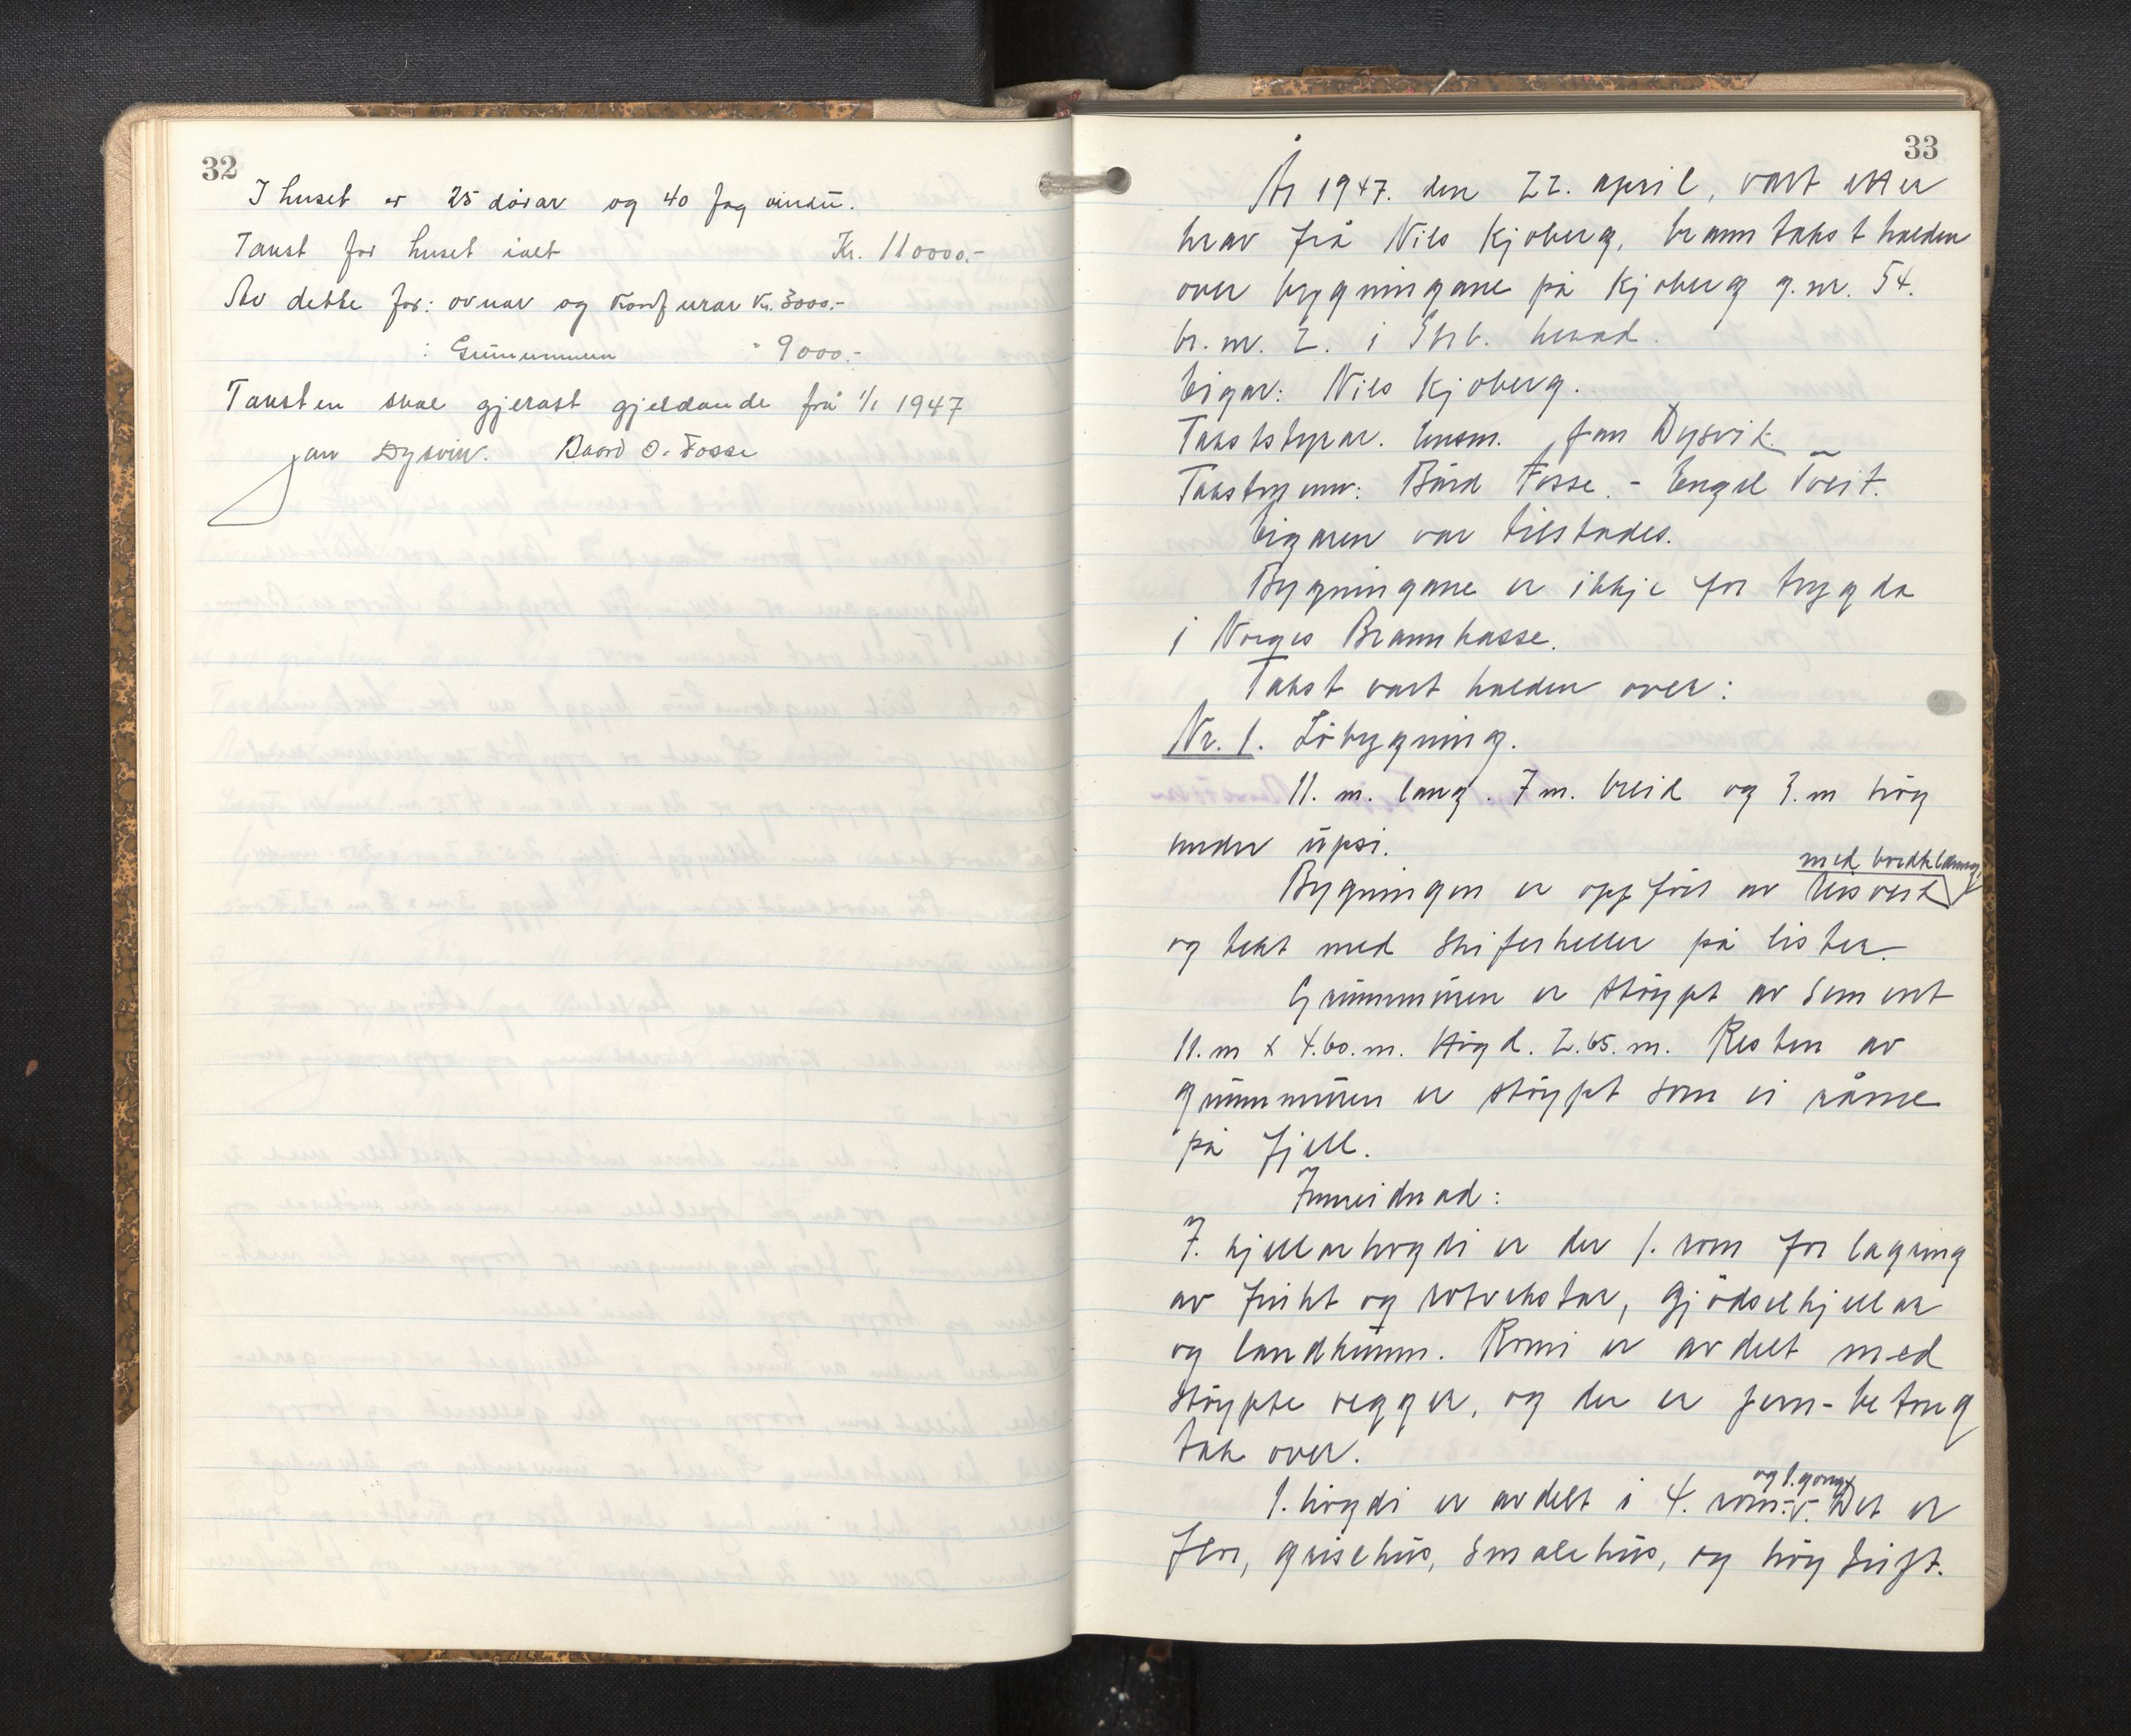 32
I huset er 25 dörar og 40 fag vindu.
Takst for huset ialt Kr. 110000.-
Av dette for: ovnar og komfurar Kr. 3000.-
: Grunnmuren " 9000.-
Taksten skal gjerast gjeldande frå 1/1 1947
Jan Dysvik. Baard O. Fosse
33
År 1947. den 22. april, vart etter
krav frå Nils Kjoberg, branntakst halden
over bygningane på Kjoberg g.nr. 54.
br. nr. 2. i herad.
Eigar: Nils Kjoberg.
Takststyrar. lensm. Jan Dysvik
Takstmenn: Bård Fosse. - Engel Tveit.
Eigaren var tilstades.
Bygningane er ikkje for trygda
i Norges Brannkasse.
Takst vart halden over:
Nr. 1. Löbygning.
11. m. lang. 7 m. breid og 3. m hög
under upsi.
med bordkledning,
Bygningen er oppfört av reisverk
og tekt med skiferheller på lister.
Grunnmuren er stöypt av sement
11. m x 4.60. m. Högd. 2.65. m. Resten av
grunnmuren er stöypt som ei råme
på fjell.
Innreidnad:
I. kjellarhögdi er der 1. rom for lagring
av frukt og rotvekstar, gjödselkjellar
og landkumm. Romi er avdelt med
stöypte vegger, og der er jern-betong
tak over.
og 1. gong
1. högdi er avdelt i 4. rom. Det er
flor, grisehus, smalehus, og höydrift.